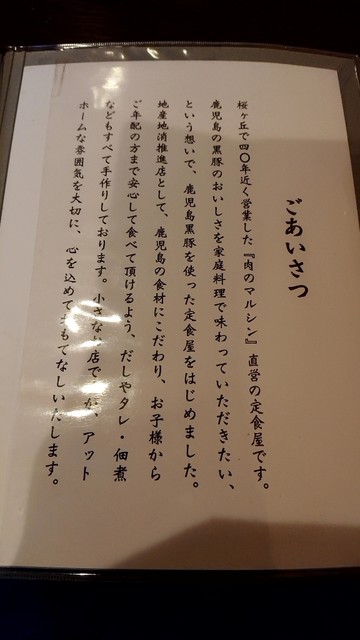 ごあいさつ
桜ヶ丘で四〇年近く営業した『肉のマルシン』直営の定食屋です。
鹿児島の黒豚のおいしさを家庭料理で味わっていただきたい、
という想いで、鹿児島黒豚を使った定食屋をはじめました。
地産地消推進店として、鹿児島の食材にこだわり、お子様から
ご年配の方まで安心して食べて頂けるよう、だしやタレ・佃煮
などもすべて手作りしております。小さなお店ですが、アット
ホームな雰囲気を大切に、心を込めておもてなしいたします。